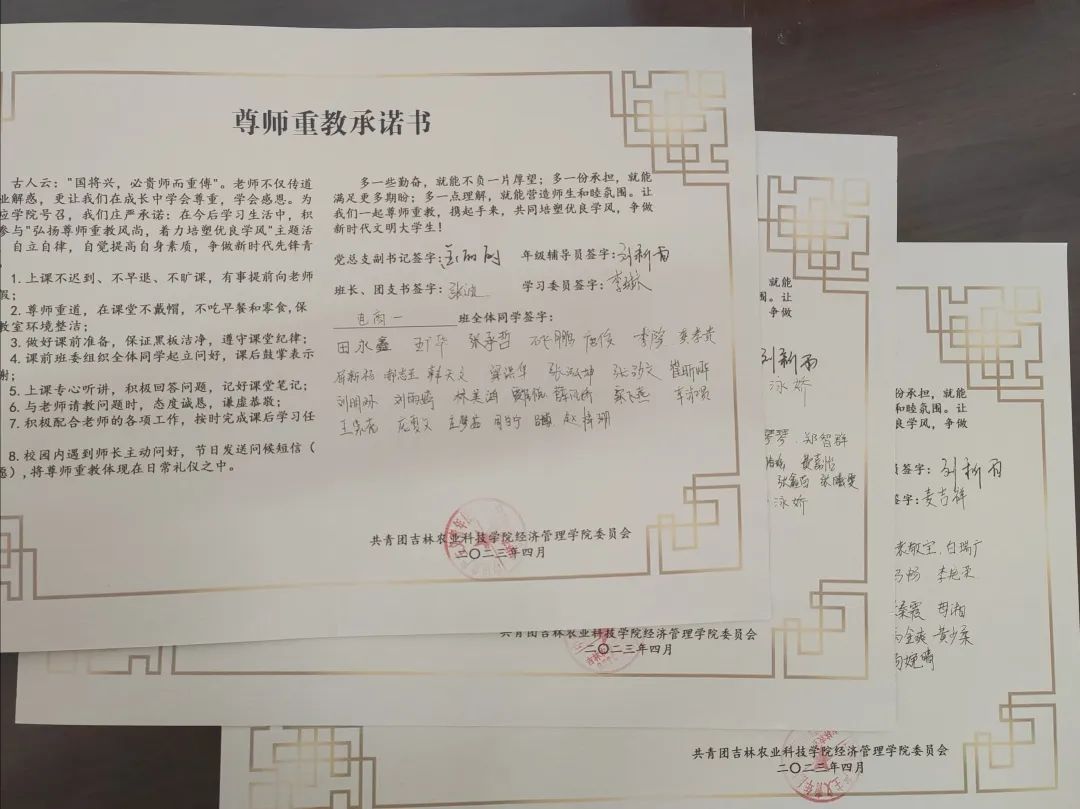 尊师重教承诺书
古人云："国将兴，必贵师而重傅"。老师不仅传道
业解惑，更让我们在成长中学会尊重，学会感恩。为
应学院号召，我们庄严承诺：在今后学习生活中，积
参与"弘扬尊师重教风尚，着力培塑优良学风"主题活
自立自律，自觉提高自身素质，争做新时代先锋青
1.上课不迟到、不早退、不旷课，有事提前向老师
假；
2.尊师重道，在课堂不戴帽，不吃早餐和零食，保
教室环境整洁；
3.做好课前准备，保证黑板洁净，遵守课堂纪律；
4.课前班委组织全体同学起立问好，课后鼓掌表示
谢；
5.上课专心听讲，积极回答问题，记好课堂笔记；
6.与老师请教问题时，态度诚恳，谦虚恭敬；
7.积极配合老师的各项工作，按时完成课后学习任
8.校园内遇到师长主动问好，节日发送问候短信（
愿），将尊师重教体现在日常礼仪之中。
多一些勤奋，就能不负一片厚望；多一份承担，就能
满足更多期盼；多一点理解，就能营造师生和睦氛围。让
我们一起尊师重教，携起手来，共同培塑优良学风，争做
新时代文明大学生！
党总支副书记签字： 年级辅导员签字：刘新雨
班长、团支书签字：张波 学习委员签字：李琳
电商一 班全体同学签字：
田永鑫 王广华 张承哲 李莹
郝志玉 韩天文 梁洪华 张泓坤 张劲文 崔昕晔
刘明环 刘雨婷 林美鸿
王宗尧 赵梓翔
共青团吉林农业科技学院经济管理学院委员会
二〇二三年四月
就能
围。让
争做
刘新雨
泳娇
琴琴 郑智群
黄嘉怡
张鑫茹 张曦雯
泳娇
共青团吉林农业科技学院经济管理学院委员会
二〇二三年四月
份承担，就能
和睦氛围。让
良学风，争做
签字：刘新雨
签字：麦吉祥
敬宝 白瑞广
马畅 李艳荣
苗湘
金爽 黄少柔
婉晴
共青团吉林农业科技学院经济管理学院委员会
二〇二三年四月